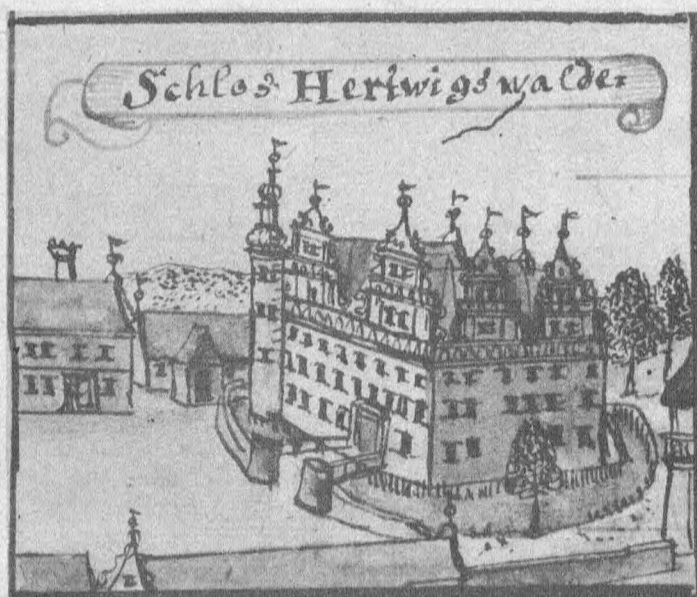 Schlos Hertwigswalde: